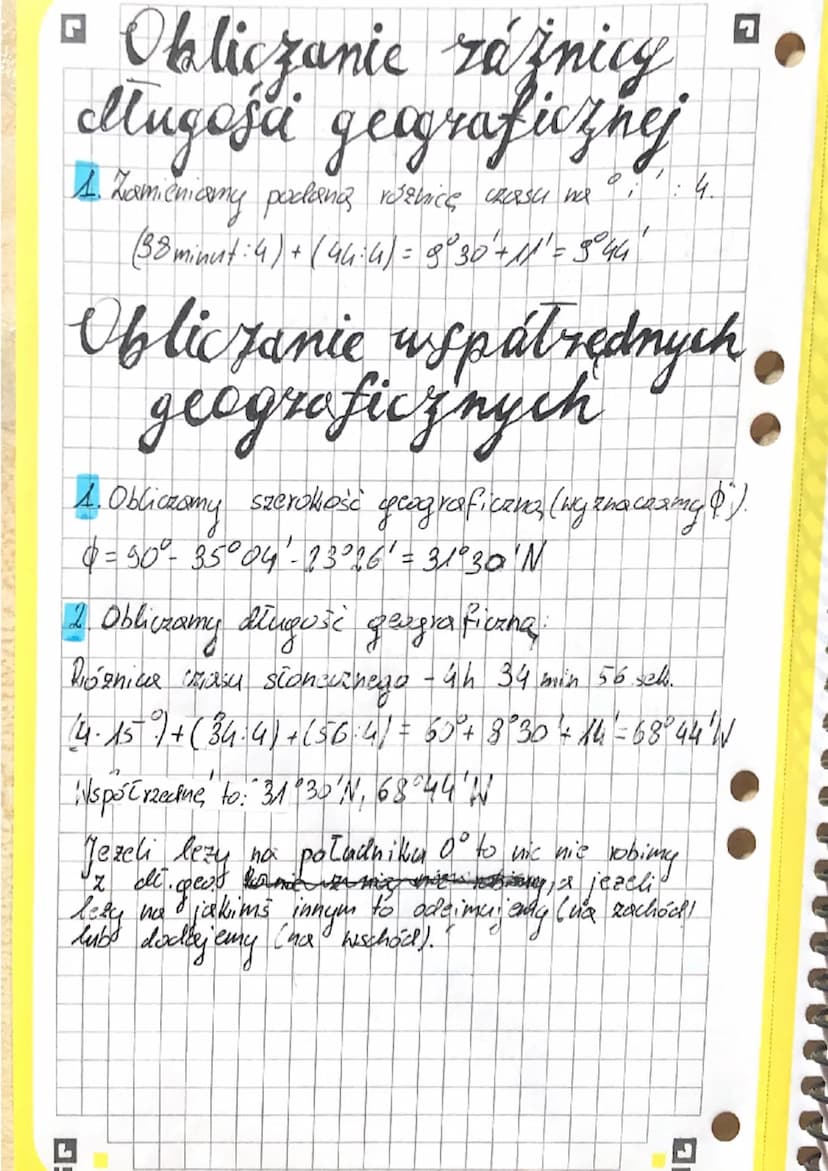 Obliczanie różnicy
długości geograficznej
1. Zamieniamy podaną różnicę czasu na ° i ' : 4.
(38 minut : 4) + (44 : 4) = 9°30' + 11' = 9°44'
Obliczanie współrzędnych
geograficznych
1. Obliczamy szerokość geograficzną (wyznaczamy ϕ).
ϕ = 90° - 35°04' - 23°26' = 31°30'N
2. Obliczamy długość geograficzną:
Różnica czasu słonecznego - 4h 34 min 56 sek.
(4 · 15°) + (34 : 4) + (56 : 4) = 60° + 8°30' + 14' = 68°44'W
Współrzędne to: 31°30'N, 68°44'W
Jeżeli leży na południku 0° to nic nie robimy
z dł. geo, a jeżeli
leży na jakimś innym to odejmujemy (na zachód)
lub dodajemy (na wschód).